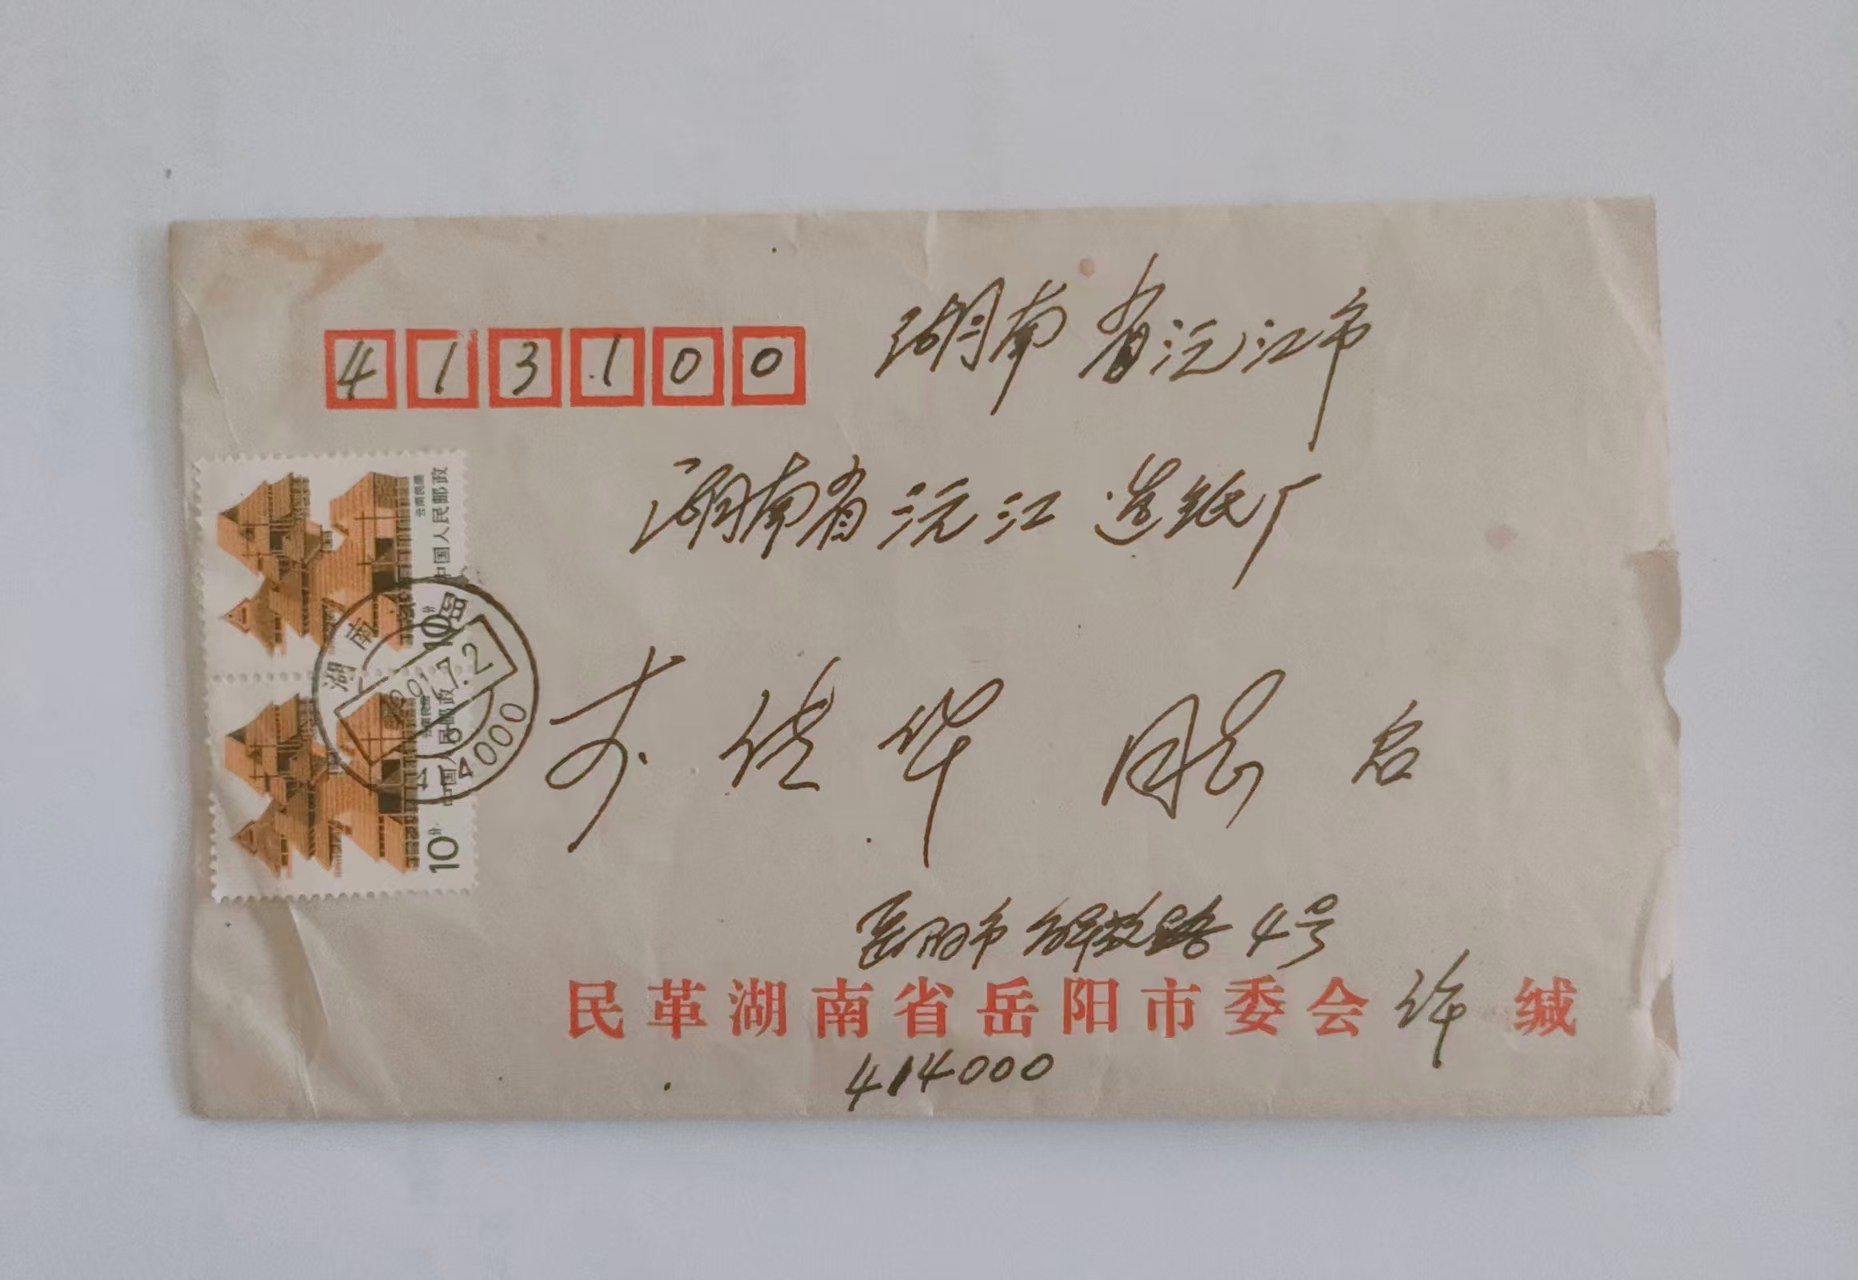 413100
湖南省沅江市
湖南省沅江造纸厂
李健华 同志 启
岳阳市解放路4号
民革湖南省岳阳市委会 许 缄
414000
云南民居
中国人民邮政
10分
云南民居
中国人民邮政
10分
湖南
7.2
414000